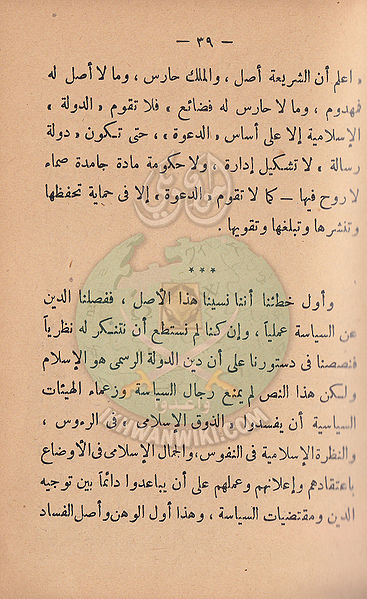 — ٣٩ —
« اعلم أن الشريعة أصل ، والملك حارس ، وما لا أصل له
فمهدوم ، وما لا حارس له فضائع » فلا تقوم « الدولة »
الإسلامية إلا على أساس « الدعوة » ، حتى تكون « دولة
رسالة » لا تشكيل إدارة ، ولا حكومة مادة جامدة صماء
لا روح فيها — كما لا تقوم « الدعوة » إلا فى حماية تحفظها
وتنشرها وتبلغها وتقويها .
* * *
وأول خطئنا أننا نسينا هذا الأصل ، ففصلنا الدين
عن السياسة عملياً ، وإن كنا لم نستطع أن نتنكر له نظرياً
فنصصنا فى دستورنا على أن دين الدولة الرسمى هو الإسلام
ولكن هذا النص لم يمنع رجال السياسة وزعماء الهيئات
السياسية أن يفسدوا « الذوق الإسلامى » فى الرءوس ،
والنظرة الإسلامية فى النفوس ، والجمال الإسلامى فى الأوضاع
باعتقادهم وإعلانهم وعملهم على أن يباعدوا دائماً بين توجيه
الدين ومقتضيات السياسة ، وهذا أول الوهن وأصل الفساد
IKHWANWIKI.COM